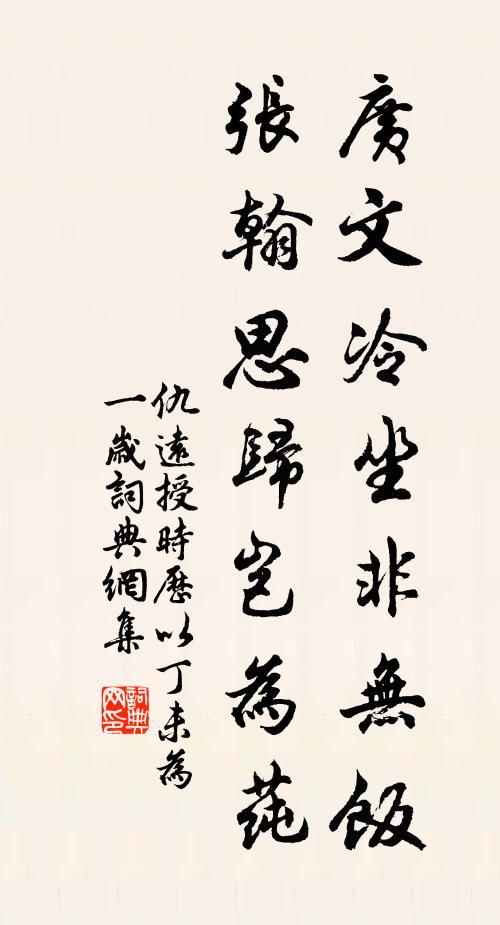 廣文冷坐非無飯
張翰思歸豈為蒓
仇遠授時歷以丁未為
一歲詞典網集
詞典網印